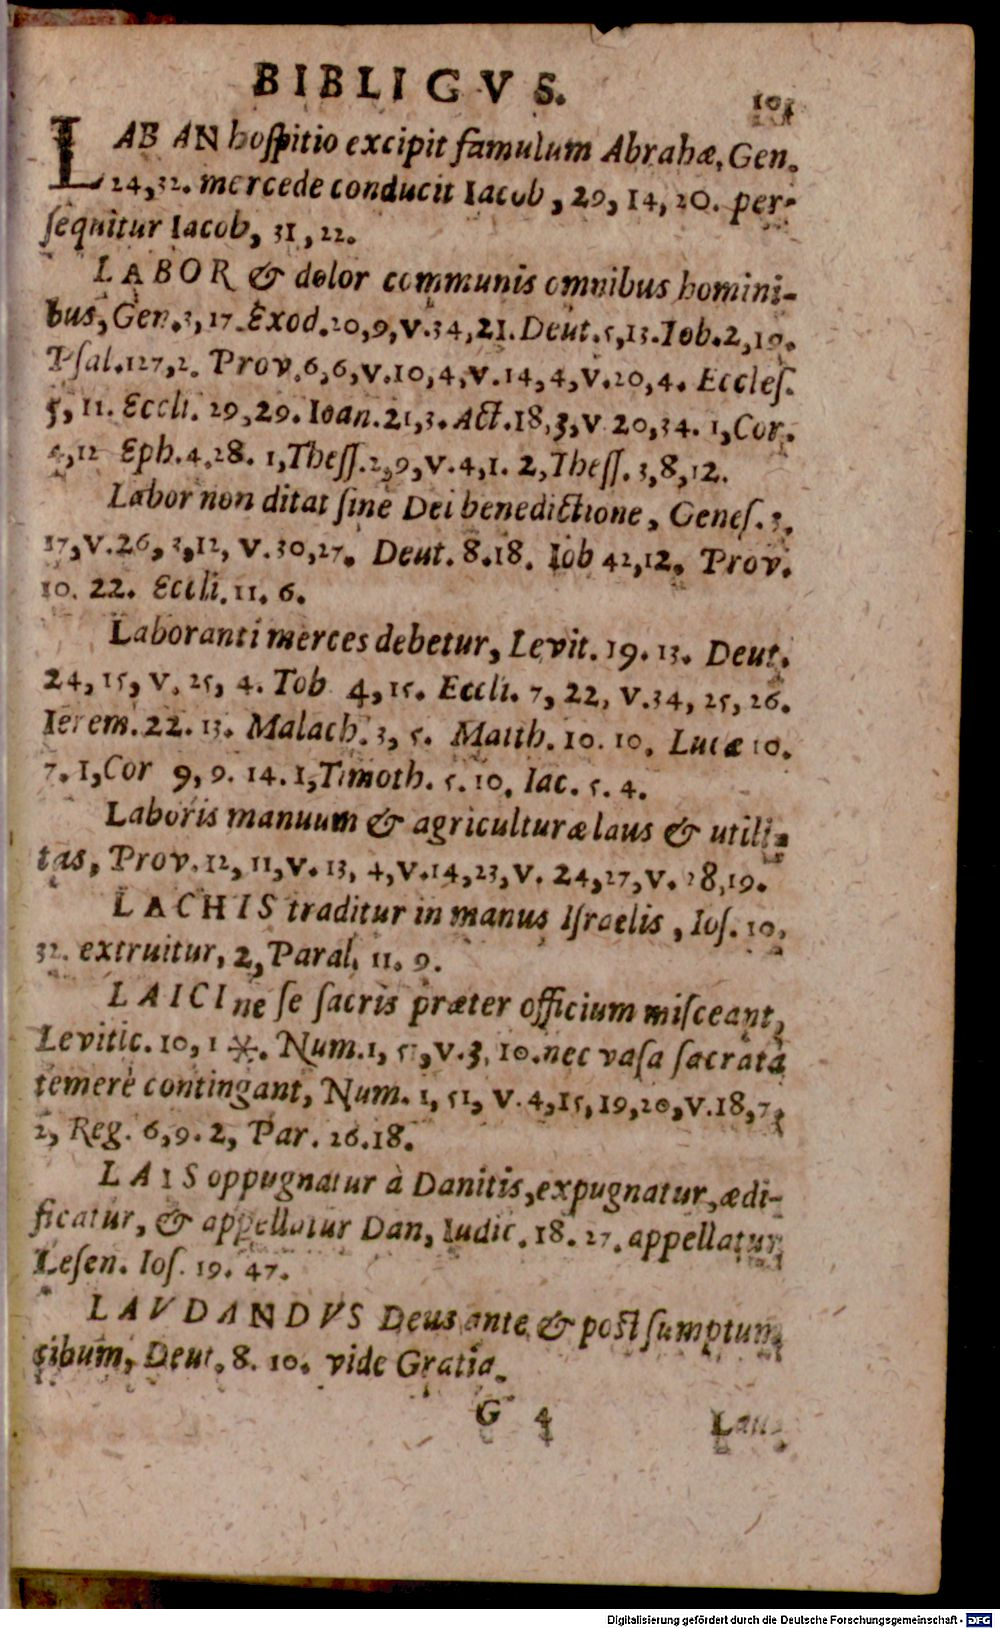 BIBLIGVS.
101
LABAN hoſpitio excipit famulum Abrahæ, Gen.
24,32. mercede conducit Iacob, 29, 14, 20. per-
ſequitur Iacob, 31, 22.
LABOR & dolor communis omnibus homini-
bus, Gen. 3, 17. Exod. 20, 9, v. 34, 21. Deut. 5, 13. Iob. 2, 10.
Pſal. 127, 2. Prov. 6, 6, v. 10, 4, v. 14, 4, v. 20, 4. Eccleſ.
5, 11. Eccli. 29, 29. Ioan. 21, 3. Act. 18, 3, v 20, 34. 1, Cor.
4, 12 Eph. 4, 28. 1, Theſſ. 2, 9, v. 4, 1. 2, Theſſ. 3, 8, 12.
Labor non ditat ſine Dei benedictione, Geneſ. 3.
17, v. 26, 3, 12, v. 30, 27. Deut. 8. 18. Iob 42, 12. Prov.
10. 22. Eccli. 11. 6.
Laboranti merces debetur, Levit. 19. 13. Deut.
24, 15, v. 25, 4. Tob 4, 15. Eccli. 7, 22, v. 34, 25, 26.
Ierem. 22. 13. Malach. 3, 5. Matth. 10. 10. Lucæ 10.
7. 1, Cor 9, 9. 14. 1, Timoth. 5. 10. Iac. 5. 4.
Laboris manuum & agriculturæ laus & utili-
tas, Prov. 12, 11, v. 13, 4, v. 14, 23, v. 24, 27, v. 28, 19.
LACHIS traditur in manus Iſraelis, Ioſ. 10,
32. extruitur, 2, Paral. 11. 9.
LAICI ne ſe ſacris præter officium miſceant,
Levitic. 10, 1 *. Num. 1, 51, v. 3, 10. nec vaſa ſacrata
temerè contingant, Num. 1, 51, v. 4, 15, 19, 20, v. 18, 7,
2, Reg. 6, 9. 2, Par. 26. 18.
LAIS oppugnatur à Danitis, expugnatur, ædi-
ficatur, & appellatur Dan, Iudic. 18. 27. appellatur
Leſen. Ioſ. 19. 47.
LAVDANDVS Deus ante & poſt ſumptum
cibum, Deut. 8. 10. vide Gratia.
G 4
Lau-
Digitalisierung gefördert durch die Deutsche Forschungsgemeinschaft - DFG